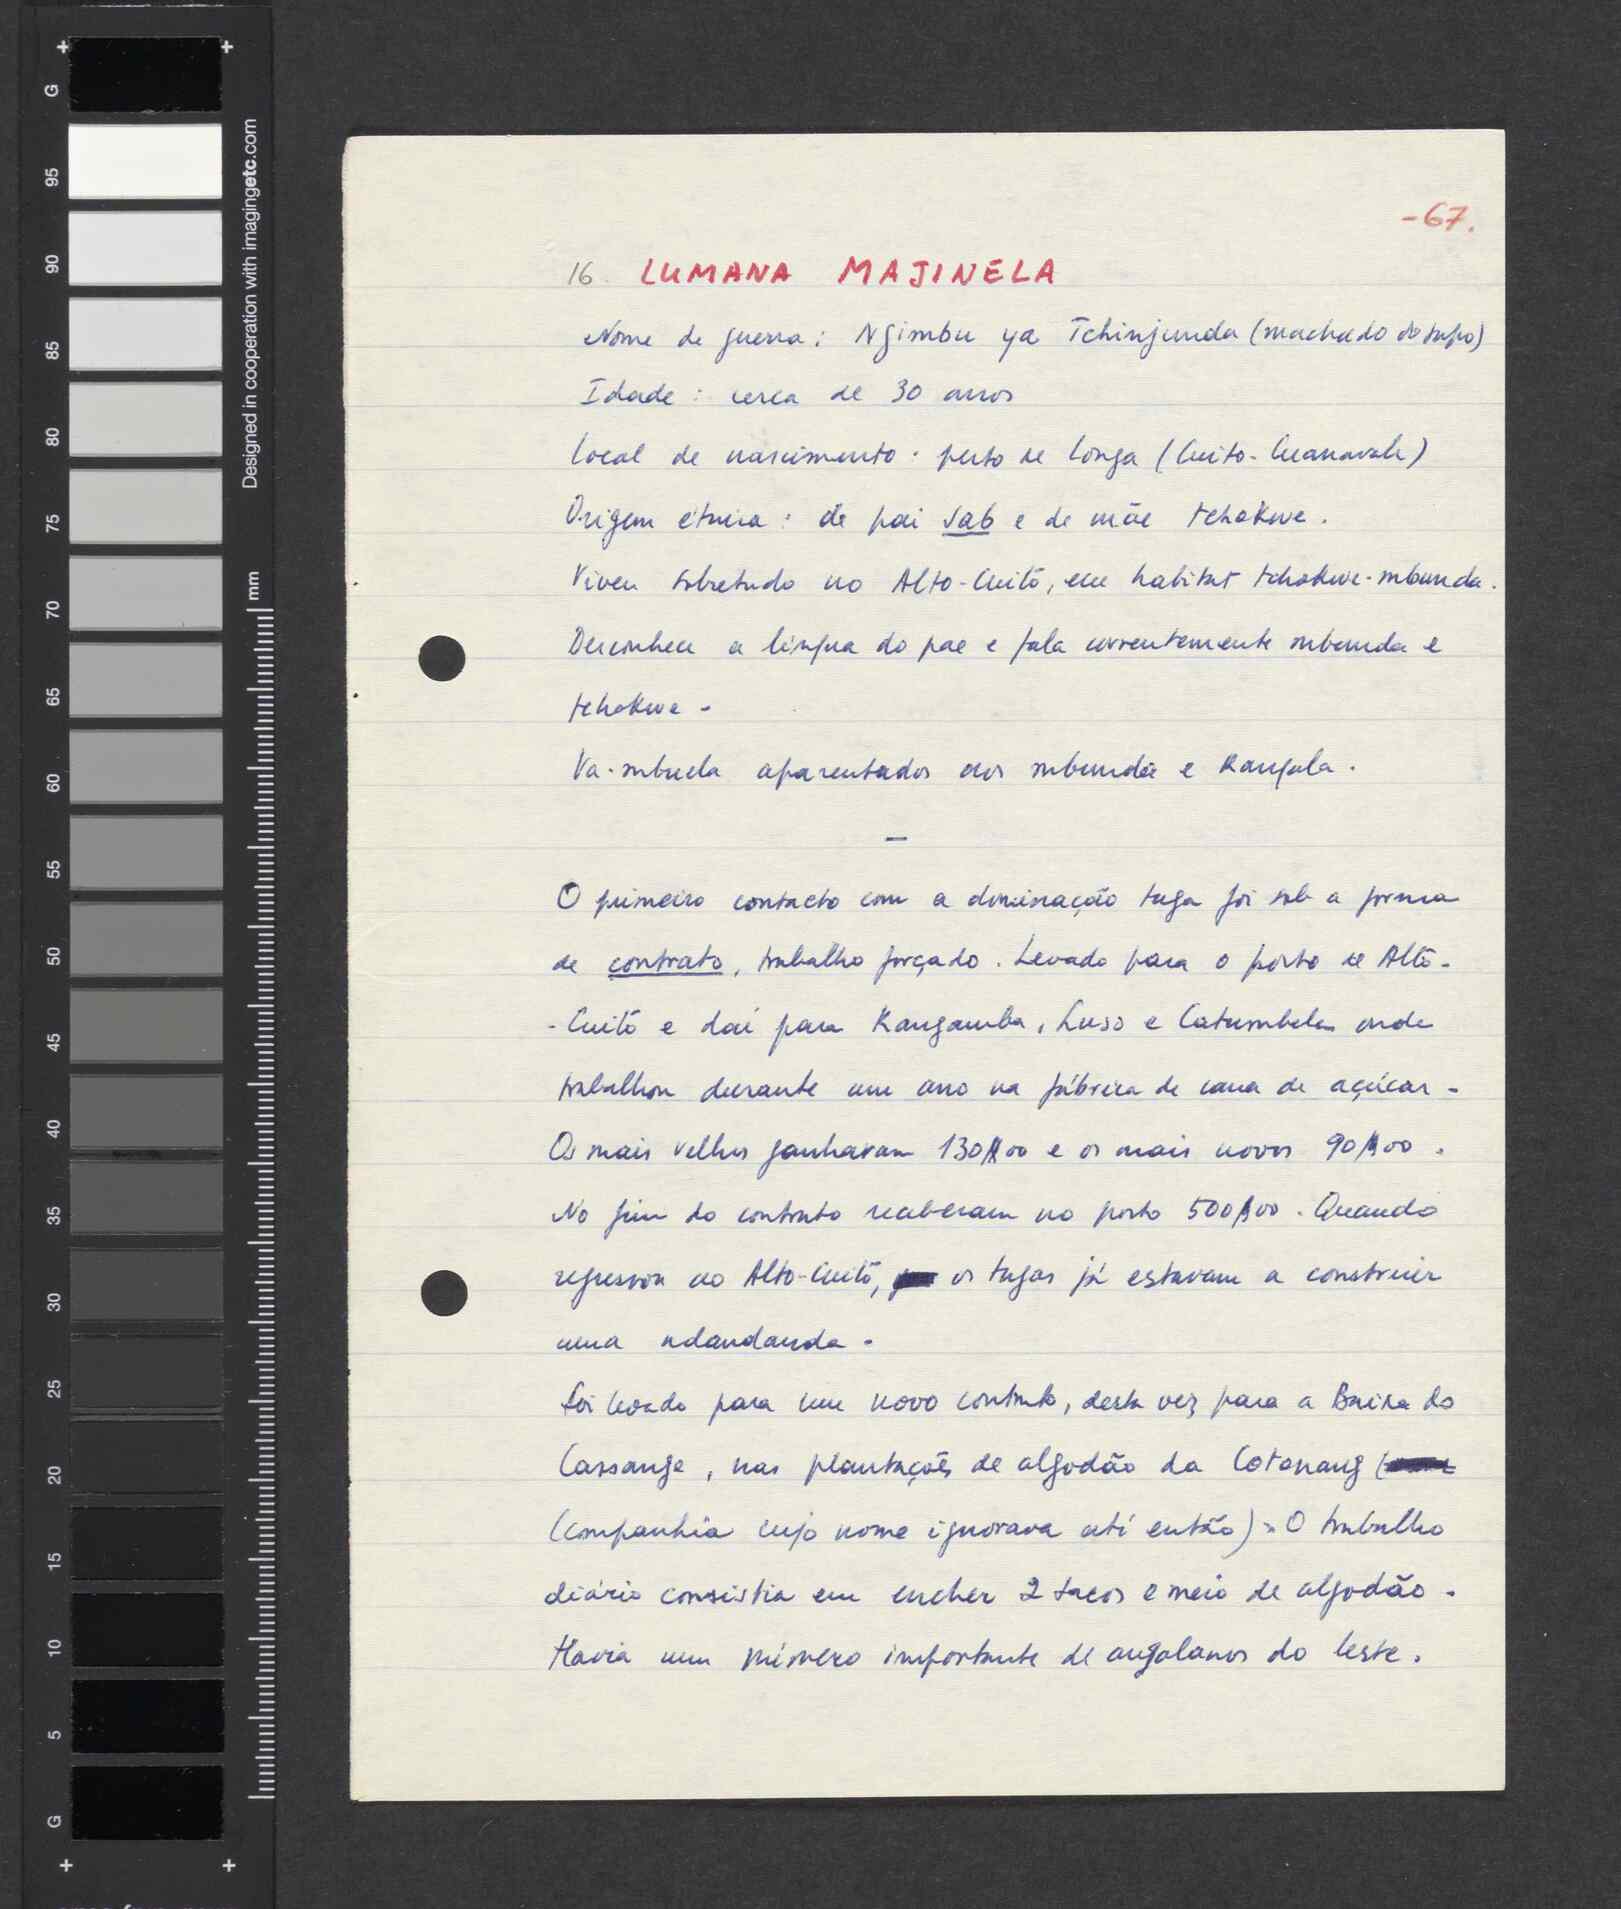 -67.
16. LUMANA MAJINELA
Nome de guerra: Ngimbu ya Tchinjunda (machado do
Idade: cerca de 30 anos
Local de nascimento: perto de Longa (Cuito-Cuanavale)
Origem étnica: de pai sab e de mãe tchokwe.
Viveu sobretudo no Alto-Cuito, em habitat tchokwe-mbunda.
Desconhece a língua do pae e fala correntemente mbunda e
tchokwe.
Va-mbuela aparentados aos mbunda e Kangala.
—
O primeiro contacto com a dominação tuga foi sob a forma
de contrato, trabalho forçado. Levado para o posto de Alto-
-Cuito e daí para Kangamba, Luso e Catumbela onde
trabalhou durante um ano na fábrica de cana de açúcar.
Os mais velhos ganhavam 130$00 e os mais novos 90$00.
No fim do contrato receberam no posto 500$00. Quando
regressou ao Alto-Cuito, os tugas já estavam a construir
uma ndandanda.
Foi levado para um novo contrato, desta vez para a Baixa do
Cassange, nas plantações de algodão da Cotonang (
(companhia cujo nome ignorava até então). O trabalho
diário consistia em encher 2 sacos e meio de algodão.
Havia um número importante de angolanos do leste.
G
95
90
85
80
75
70
65
60
55
50
45
40
35
30
25
20
15
10
5
G
mm
Designed in cooperation with imagingetc.com